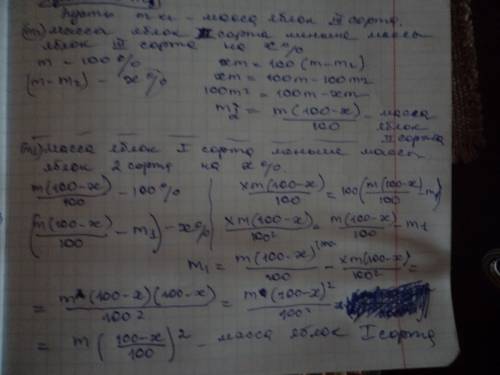 Пусть m кг – масса яблок III сорта.
(m₂) масса яблок II сорта меньше массы
яблок III сорта на x%
m – 100% xm = 100(m-m₂)
(m-m₂) – x% xm = 100m-100m₂
100m₂ = 100m-xm
m₂ = m(100-x)/100 – масса
яблок
II сорта
(m₁) масса яблок I сорта меньше массы
яблок 2 сорта на x%.
m(100-x)/100 – 100% | xm(100-x)/100 = 100(m(100-x)/100 - m₁)
(m(100-x)/100 - m₁) – x% | xm(100-x)/100² = m(100-x)/100 - m₁
m₁ = m(100-x)/100 - xm(100-x)/100² =
= m(100-x)(100-x)/100² = m(100-x)²/100²
= m((100-x)/100)² – масса яблок I сорта